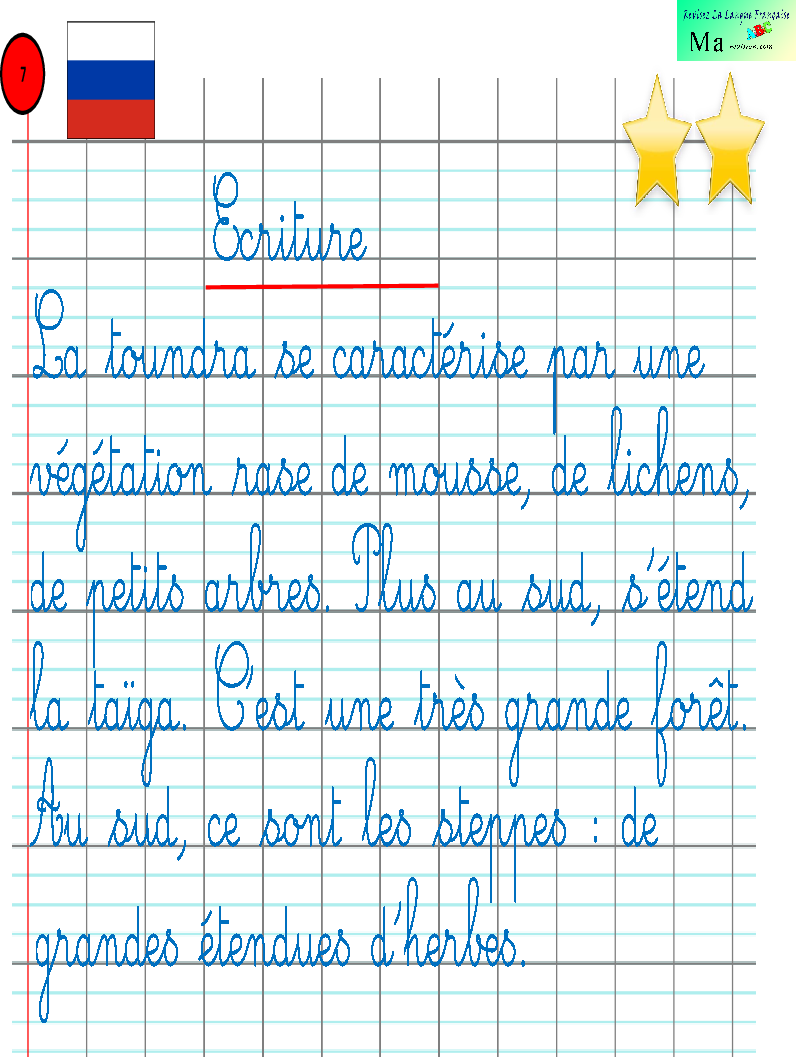 Revisez La Langue Française
Ma
7
Ecriture
La toundra se caractérise par une
végétation rase de mousse, de lichens,
de petits arbres. Plus au sud, s'étend
la taïga. C'est une très grande forêt.
Au sud, ce sont les steppes : de
grandes étendues d'herbes.